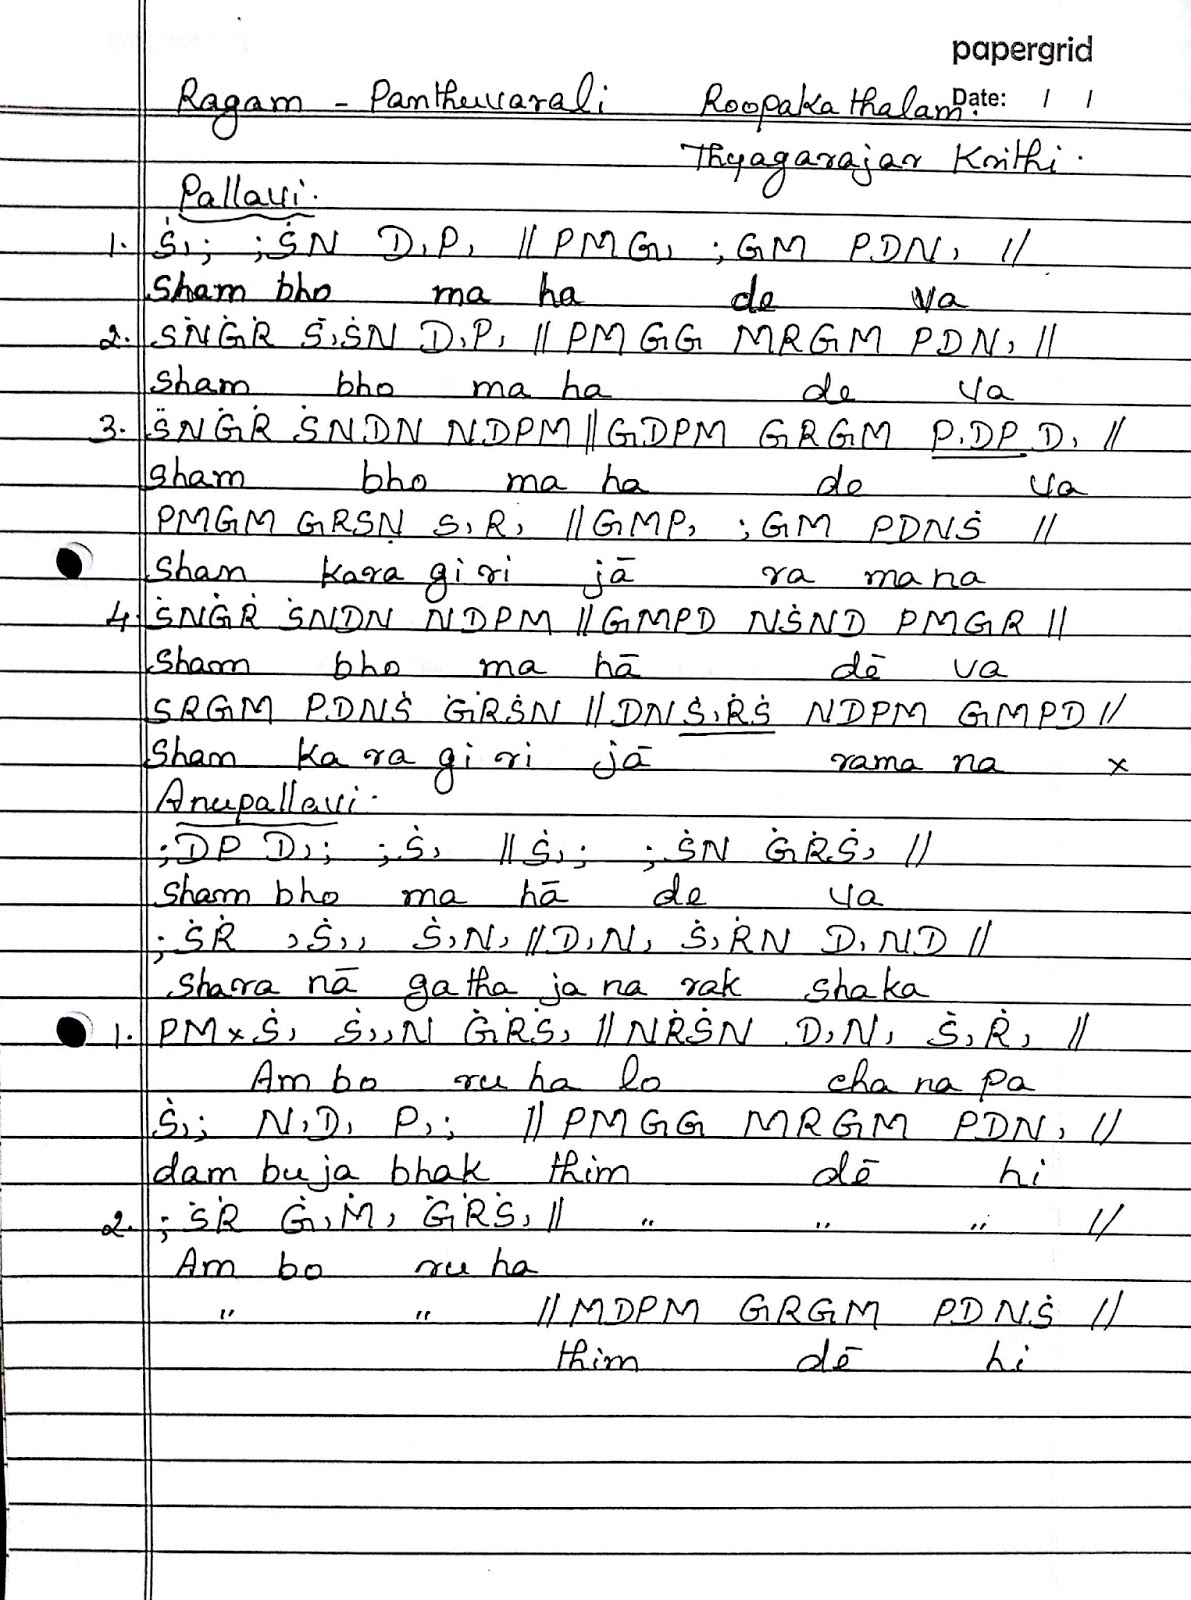 papergrid
Ragam - Panthuvarali Roopaka thalam. Date: / /
Thyagarajar Krithi.
Pallavi.
1. Ṡ,; ;ṠN D,P, // PMG, ;GM PDN, //
Sham bho ma ha de va
2. ṠNĠṘ Ṡ,ṠN D,P, // PMGG MRGM PDN, //
Sham bho ma ha de va
3. ṠNĠṘ ṠNDN NDPM // GDPM GRGM P,DP D, //
Sham bho ma ha de va
PMGM GRSṆ S,R, // GMP, ;GM PDNṠ //
Shan kara gi ri jā ra ma na
4. ṠNĠṘ ṠNDN NDPM // GMPD NṠND PMGR //
Sham bho ma hā dē va
SRGM PDNṠ ĠṘṠN // DNṠ,ṘṠ NDPM GMPD //
Sham ka ra gi ri jā rama na x
Anupallavi.
;DP D,; ;Ṡ, // Ṡ,; ;ṠN ĠṘṠ, //
Sham bho ma hā de va
;ṠṘ ,Ṡ,, Ṡ,N, // D,N, Ṡ,ṘN D,ND //
Shara nā ga tha ja na rak shaka
1. PMxṠ, Ṡ,,N ĠṘṠ, // NṘṠN D,N, Ṡ,Ṙ, //
Am bo ru ha lo cha na pa
Ṡ,; N,D, P,; // PMGG MRGM PDN, //
dam bu ja bhak thim dē hi
2. ;ṠṘ Ġ,Ṁ, ĠṘṠ, // " " " //
Am bo ru ha
" " // MDPM GRGM PDNṠ //
thim dē hi